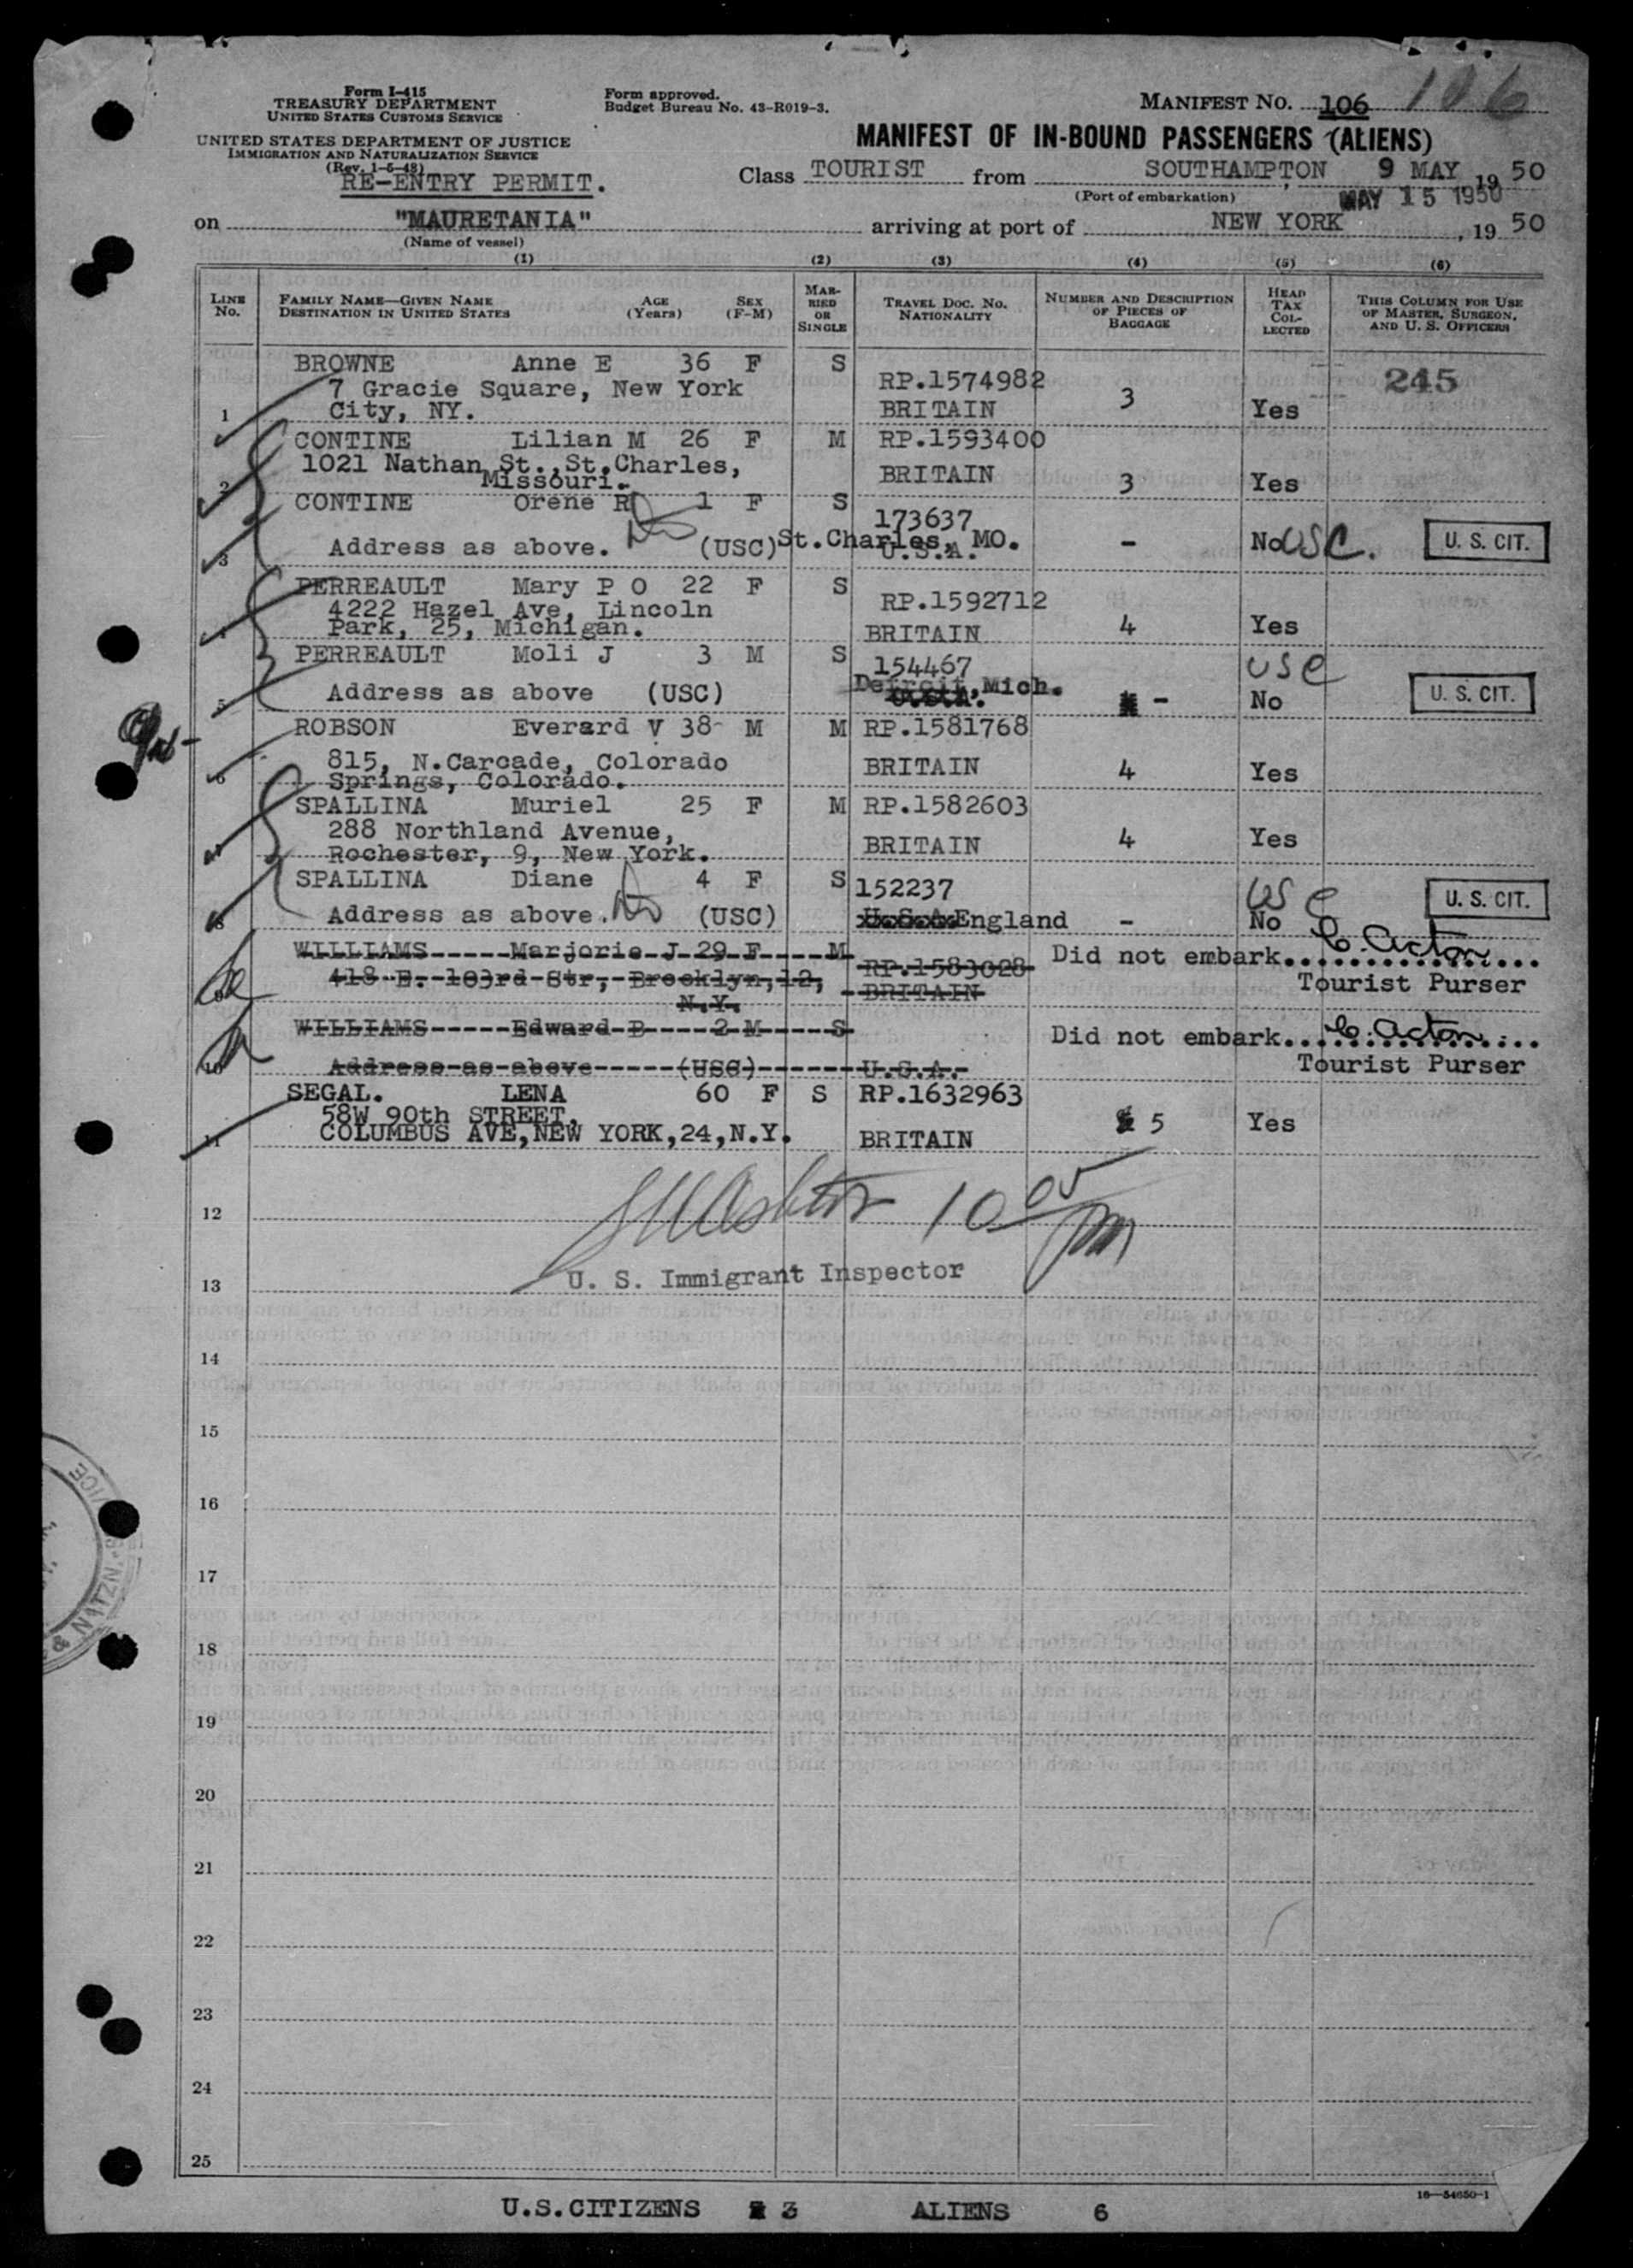 Form I-415
TREASURY DEPARTMENT
UNITED STATES CUSTOMS SERVICE
UNITED STATES DEPARTMENT OF JUSTICE
IMMIGRATION AND NATURALIZATION SERVICE
(Rev. 1-5-48)
RE-ENTRY PERMIT.
Form approved.
Budget Bureau No. 43-R019-3.
MANIFEST NO. 106 106
MANIFEST OF IN-BOUND PASSENGERS (ALIENS)
Class TOURIST from SOUTHAMPTON, 9 MAY 1950
(Port of embarkation) MAY 15 1950
on "MAURETANIA" arriving at port of NEW YORK, 1950
(Name of vessel)
(1) (2) (3) (4) (5) (6)
LINE No. FAMILY NAME—GIVEN NAME DESTINATION IN UNITED STATES AGE (Years) SEX (F-M) MARRIED OR SINGLE TRAVEL DOC. NO. NATIONALITY NUMBER AND DESCRIPTION OF PIECES OF BAGGAGE HEAD TAX COLLECTED THIS COLUMN FOR USE OF MASTER, SURGEON, AND U. S. OFFICERS
BROWNE Anne E 36 F S RP.1574982 245
7 Gracie Square, New York
1 City, NY. BRITAIN 3 Yes
CONTINE Lilian M 26 F M RP.1593400
1021 Nathan St., St.Charles,
2 Missouri. BRITAIN 3 Yes
CONTINE Orene R 1 F S 173637
3 Address as above. (USC) St.Charles, MO. U.S.A. - No USC. U. S. CIT.
PERREAULT Mary P O 22 F S RP.1592712
4222 Hazel Ave, Lincoln
4 Park, 25, Michigan. BRITAIN 4 Yes
PERREAULT Moli J 3 M S 154467 USC
5 Address as above (USC) Detroit, Mich. - No U. S. CIT.
ROBSON Everard V 38 M M RP.1581768
815, N.Carcade, Colorado
6 Springs, Colorado. BRITAIN 4 Yes
SPALLINA Muriel 25 F M RP.1582603
288 Northland Avenue,
7 Rochester, 9, New York. BRITAIN 4 Yes
SPALLINA Diane 4 F S 152237 USC U. S. CIT.
8 Address as above. (USC) U.S.A. England - No
WILLIAMS Marjorie J 29 F M RP.1583028 Did not embark. C. Acton
418 B. 103rd Str, Brooklyn, 12, Tourist Purser
9 N.Y. BRITAIN
WILLIAMS Edward B 2 M S Did not embark. C. Acton
10 Address as above (USC) U.S.A. Tourist Purser
SEGAL. LENA 60 F S RP.1632963
58W 90th STREET,
11 COLUMBUS AVE,NEW YORK,24,N.Y. BRITAIN 5 Yes
10 05 pm
12
U. S. Immigrant Inspector
13
14
15
16
17
18
19
20
21
22
23
24
25
16—54650-1
U.S.CITIZENS 3 ALIENS 6